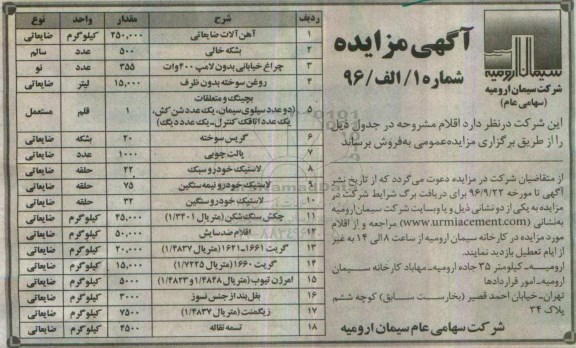 آگهی مزایده
شماره ۱/الف/۹۶
سیمان ارومیه
شرکت سیمان ارومیه
(سهامی عام)
این شرکت درنظر دارد اقلام مشروحه در جدول ذیل
را از طریق برگزاری مزایده عمومی به‌فروش برساند
از متقاضیان شرکت در مزایده دعوت می‌گردد که از تاریخ نشر
آگهی تا مورخه ۹۶/۹/۲۲ برای دریافت برگ شرایط شرکت در
مزایده به یکی از دو نشانی ذیل و یا وبسایت شرکت سیمان ارومیه
به‌نشانی (www.urmiacement.com) مراجعه و از اقلام
مورد مزایده در کارخانه سیمان ارومیه از ساعت ۸ الی ۱۴ به غیر
از ایام تعطیل بازدید نمایند.
ارومیه-کیلومتر ۳۵ جاده ارومیه-مهاباد کارخانه سیمان
ارومیه-امور قراردادها
تهران-خیابان احمد قصیر (بخارست سابق) کوچه ششم
پلاک ۳۴
شرکت سهامی عام سیمان ارومیه
ردیف شرح مقدار واحد نوع
۱ آهن آلات ضایعاتی ۲۵۰,۰۰۰ کیلوگرم ضایعاتی
۲ بشکه خالی ۵۰۰ عدد سالم
۳ چراغ خیابانی بدون لامپ ۴۰۰ وات ۳۵۵ عدد نو
۴ روغن سوخته بدون ظرف ۱۵,۰۰۰ لیتر ضایعاتی
۵ بچینگ و متعلقات
(دو عدد سیلوی سیمان، یک عدد شن کش،
یک عدد اتاقک کنترل-یک عدد دیگ) ۱ قلم مستعمل
۶ گریس سوخته ۲۰ بشکه ضایعاتی
۷ پالت چوبی ۱۰۰۰ عدد ضایعاتی
۸ لاستیک خودرو سبک ۲۲ حلقه ضایعاتی
۹ لاستیک خودرو نیمه سنگین ۷۵ حلقه ضایعاتی
۱۰ لاستیک خودرو سنگین ۳۲ حلقه ضایعاتی
۱۱ چکش سنگ‌شکن (متریال ۱/۳۴۰۱) ۲۵,۰۰۰ کیلوگرم ضایعاتی
۱۲ اقلام ضدسایش ۵۰,۰۰۰ کیلوگرم ضایعاتی
۱۳ گریت ۱۶۶۱-۱۶۲۱ (متریال ۱/۴۸۳۷) ۲۰,۰۰۰ کیلوگرم ضایعاتی
۱۴ گریت ۱۶۶۰ (متریال ۱/۷۲۲۵) ۱۵,۰۰۰ کیلوگرم ضایعاتی
۱۵ امرژن تیوب (متریال ۱/۴۸۴۸ و ۱/۴۸۲۳) ۵۰۰۰ کیلوگرم ضایعاتی
۱۶ بغل‌بند از جنس نسوز ۳۰۰۰ کیلوگرم ضایعاتی
۱۷ زیگمنت (متریال ۱/۴۸۳۷) ۷۵۰۰ کیلوگرم ضایعاتی
۱۸ تسمه نقاله ۲۵۰۰ کیلوگرم ضایعاتی